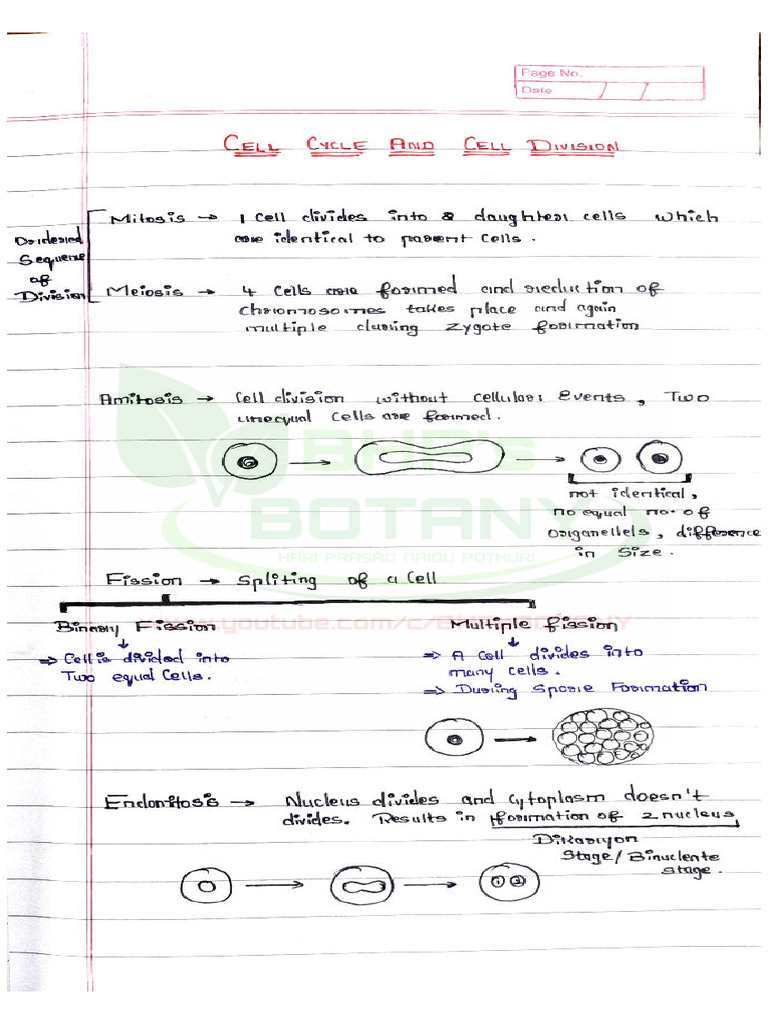 Page No.
Date / /
CELL CYCLE AND CELL DIVISION
Ordered
Sequence
of
Division
Mitosis → 1 Cell divides into 2 daughter cells which
are identical to parent cells.
Meiosis → 4 Cells are formed and reduction of
chromosomes takes place and again
multiple during zygote formation
Amitosis → Cell division without cellular events, Two
unequal cells are formed.
BHP's
BOTANY
HARI PRASAD NAIDU POTHURI
not identical,
no equal no. of
organellels, difference
in size.
Fission → Spliting of a Cell
www.youtube.com/c/BHPsBOTANY
Binary Fission
Multiple fission
⇒ Cell is divided into
Two equal Cells.
⇒ A Cell divides into
many cells.
⇒ During Spore Formation
Endomitosis → Nucleus divides and cytoplasm doesn't
divides. Results in formation of 2 nucleus
Dikaryon
Stage/Binucleate
stage.
1 2